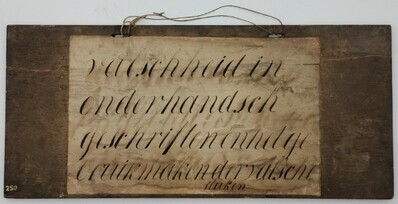 valschheid in
onderhandsch
geschriften en het ge
bruik maken der valsche
stuken
250